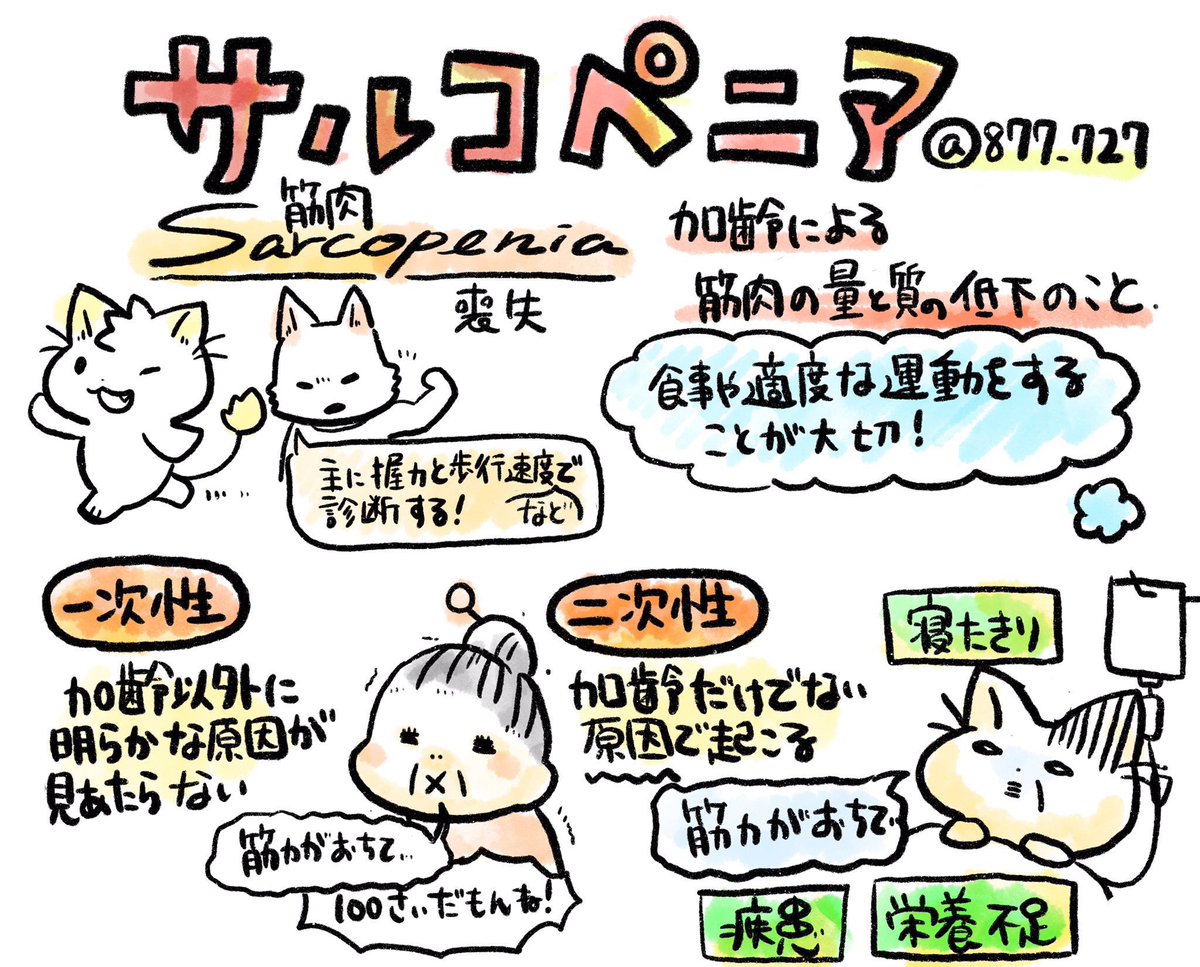 サルコペニア
@877_727
筋肉
Sarcopenia
喪失
加齢による
筋肉の量と質の低下のこと.
食事や適度な運動をする
ことが大切!
主に握力と歩行速度で
診断する! など
一次性
加齢以外に
明らかな原因が
見あたらない
筋力がおちて…
100さいだもんね!
二次性
加齢だけでない
原因で起こる
寝たきり
筋力がおちて…
疾患
栄養不足